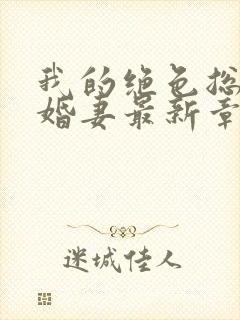 我的绝色总
婚妻最新章
迷城佳人